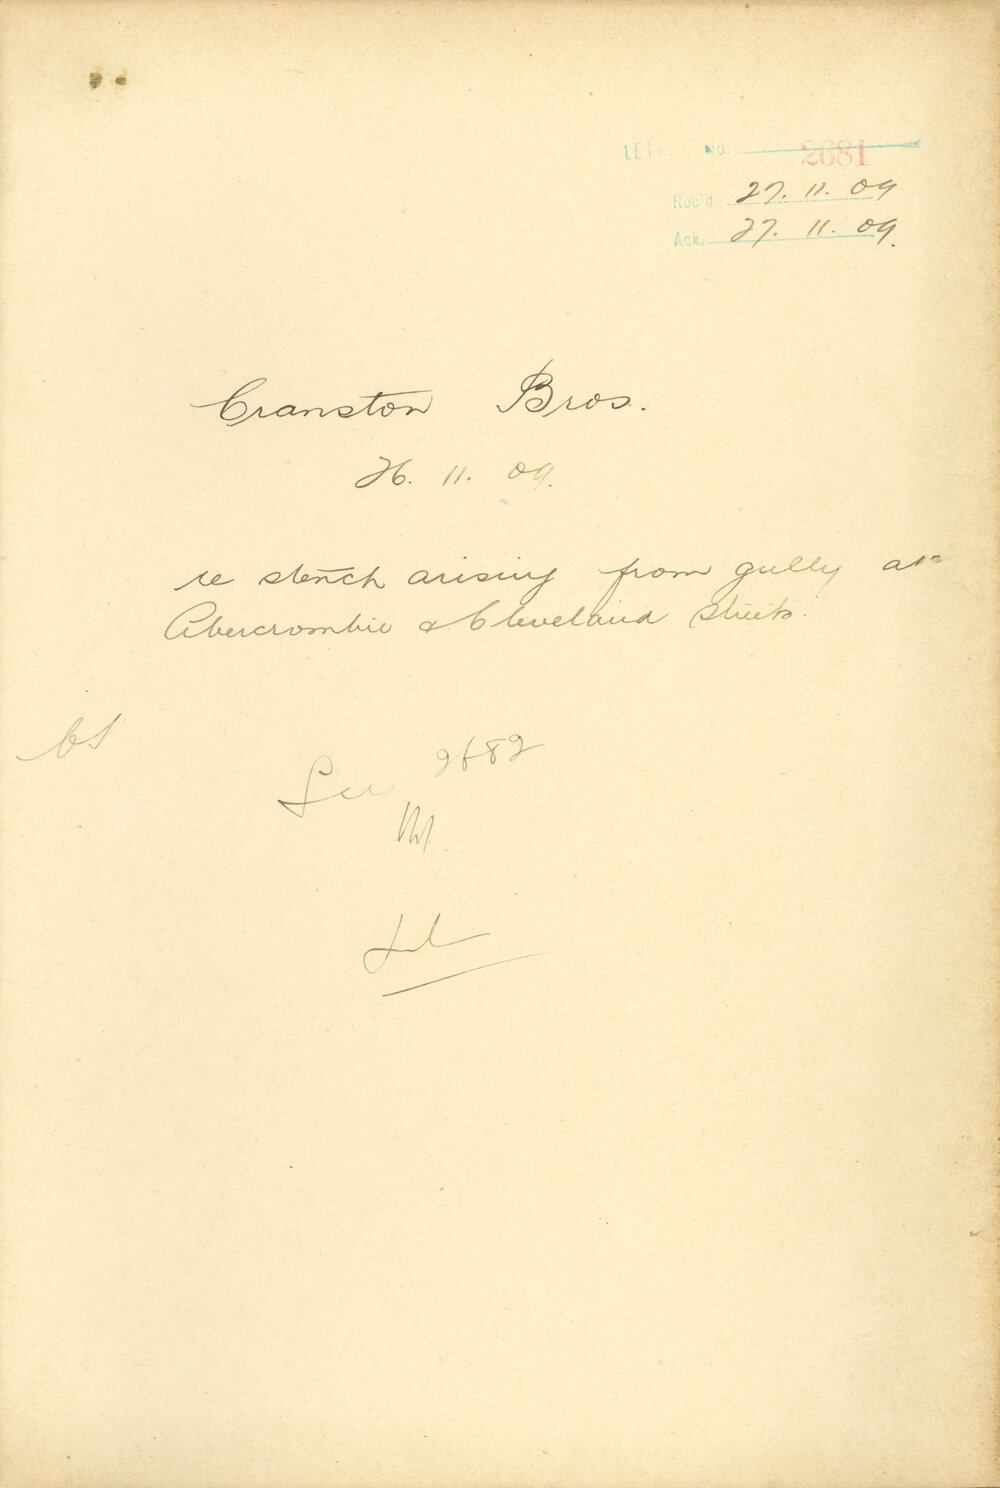 LETTER No. 2681
Rec'd 27. 11. 09
Ack. 27. 11. 09.
Cranston Bros.
26. 11. 09.
re stench arising from gully at
Abercrombie & Cleveland Streets.
See 2682